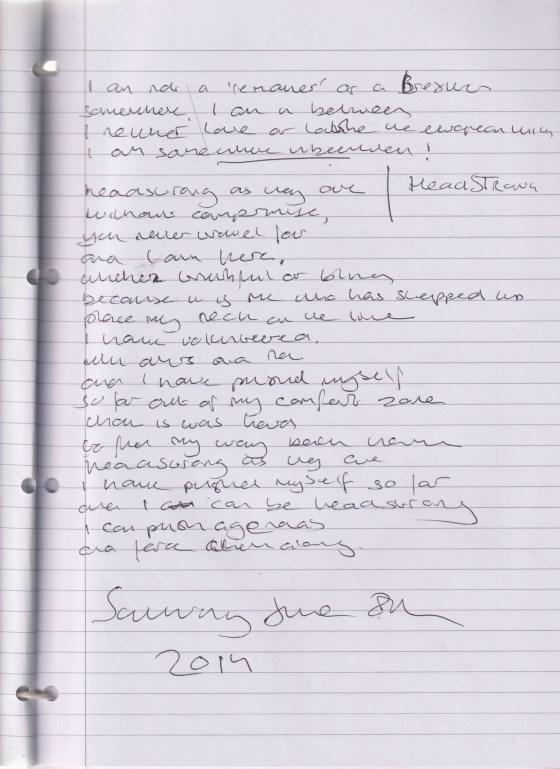 I am not a 'remainer' or a Brexiter
somewhere. I am a between
I neither love or loathe the european union
I am somewhere inbetween!
headstrong as they are | HeadStrong
without compromise,
you never travel far
and I am here,
because it is me who has stepped up
place my neck on the line
I have volunteered.
and I have pushed myself
so far out of my comfort zone
that is was hard
to find my way back home
headstrong as they are
I have pushed myself so far
and I can be headstrong
I can push agendas
and force them along.
Saturday June 8th
2019